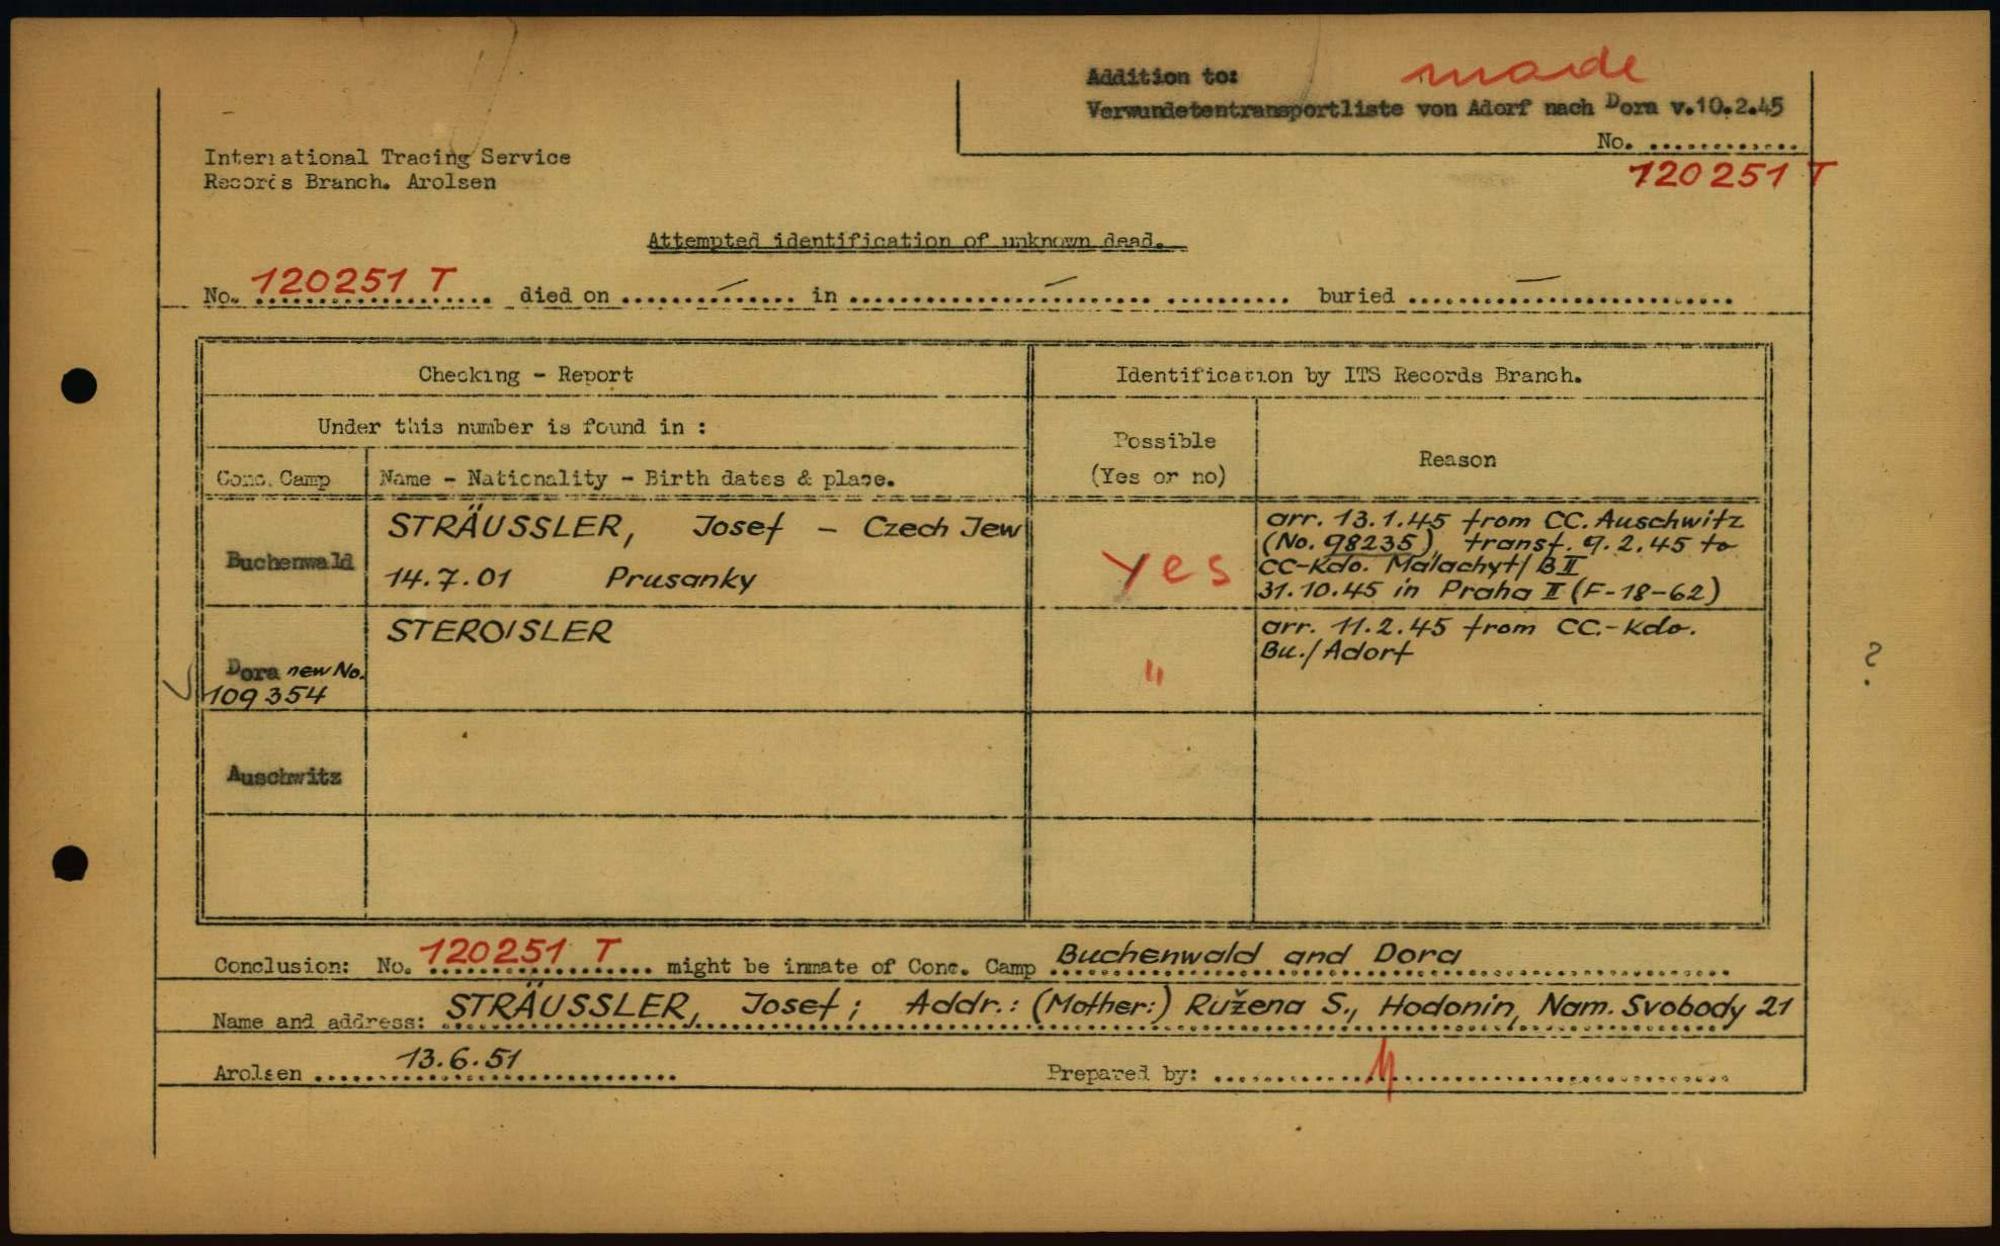 Addition to: made
Verwundetentransportliste von Adorf nach Dora v.10.2.45
No. ............
120251 T
International Tracing Service
Records Branch. Arolsen
Attempted identification of unknown dead.
No. 120251 T died on ..... — ..... in ..... — ..... buried ..... — .....
Checking - Report
Identification by ITS Records Branch.
Under this number is found in :
Possible
(Yes or no)
Reason
Conc. Camp
Name - Nationality - Birth dates & place.
Buchenwald
STRÄUSSLER, Josef - Czech Jew
14.7.01 Prusanky
Yes
arr. 13.1.45 from CC. Auschwitz
(No. 98235), transf. 9.2.45 to
CC-Kdo. Malachyt/ B II
31.10.45 in Praha II (F-18-62)
Dora new No.
109354
STEROISLER
"
arr. 11.2.45 from CC.-Kdo.
Bu./Adorf
?
Auschwitz
Conclusion: No. 120251 T might be inmate of Conc. Camp Buchenwald and Dora
Name and address: STRÄUSSLER, Josef; Addr.: (Mother:) Ružena S., Hodonin, Nam. Svobody 21
Arolsen 13.6.51 Prepared by: